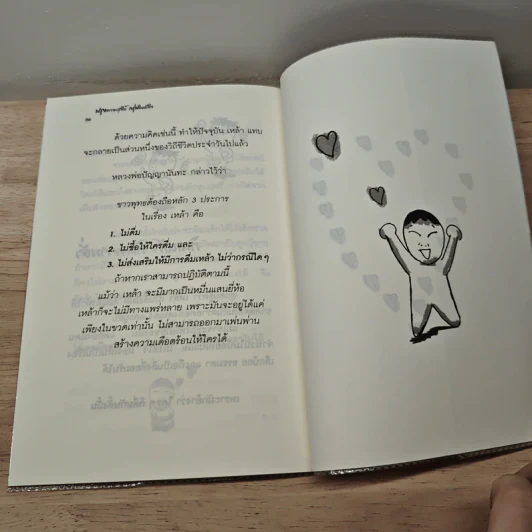 ด้วยความคิดเช่นนี้ ทำให้ปัจจุบัน เหล้า แทบ
จะกลายเป็นส่วนหนึ่งของวิถีชีวิตประจำวันไปแล้ว
หลวงพ่อปัญญานันทะ กล่าวไว้ว่า
ชาวพุทธต้องถือหลัก 3 ประการ
ในเรื่อง เหล้า คือ
1. ไม่ดื่ม
2. ไม่ซื้อให้ใครดื่ม และ
3. ไม่ส่งเสริมให้มีการดื่มเหล้า ไม่ว่ากรณีใด ๆ
ถ้าหากเราสามารถปฏิบัติตามนี้
แม้ว่า เหล้า จะมีมากเป็นหมื่นแสนยี่ห้อ
เหล้าก็จะไม่มีทางแพร่หลาย เพราะมันจะอยู่ได้แค่
เพียงในขวดเท่านั้น ไม่สามารถออกมาเพ่นพ่าน
สร้างความเดือดร้อนให้ใครได้